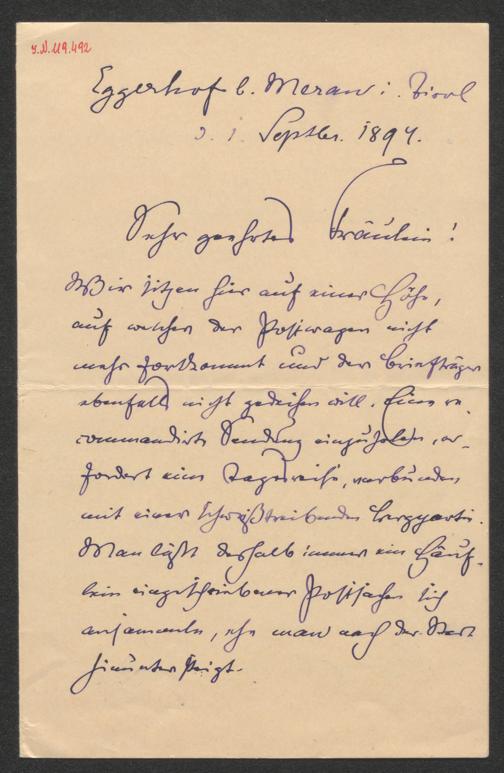 I.N. 119.492
Eggerhof b. Meran i. Tirol
d. 1. Septbr. 1894.
Sehr geehrtes Fräulein!
Wir sitzen hier auf einer Höhe,
auf welcher der Postwagen nicht
mehr fortkommt und der Briefträger
ebenfalls nicht gedeihen will. Eine re-
commandirte Sendung einzuholen, er-
fordert eine Tagesreise, verbunden
mit einer schweißtreibenden Bergpartie.
Man läßt deshalb immer ein Häuf-
lein eingeschriebener Postsachen sich
ansammeln, ehe man nach der Stadt
hinunter steigt.